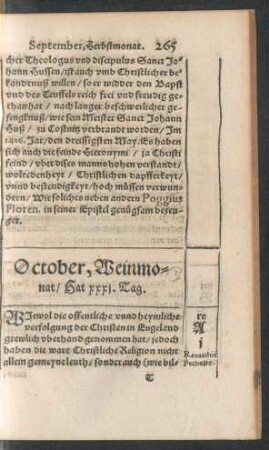 September, Herbstmonat. 265
cher Theologus vnd discipulus Sanct Jo-
hann Hussen/ ist auch vmb Christlicher be-
kandtnuß willen/ so er widder den Bapst
vnd des Teuffels reich frei vnd freudig ge-
than hat/ nach langer beschwerlicher ge-
fengknuß/ wie sein Meister Sanct Johann
Huß/ zu Costnitz verbrandt worden/ Im
1416. Jar/ den dreissigsten May. Es haben
sich auch die feinde Hieronymi/ ja Christi
feind/ vber disses manns hohen verstandt/
wolredenheyt/ Christlichen dapfferkeyt/
vnnd bestendigkeyt/ hoch müssen verwun-
dern/ Wie solches neben andern Poggius
Floren. in seiner Epistel genügsam bezeu-
get.
October, Weinmo-
nat/ Hat xxxj. Tag.
WJewol die offentliche vnnd heymliche
verfolgung der Christen in Engeland
grewlich vberhand genommen hat/ jedoch
haben die ware Christliche Religion nicht
allein gemeyne leuth/ sonder auch (wie bil-
re
A
j
T